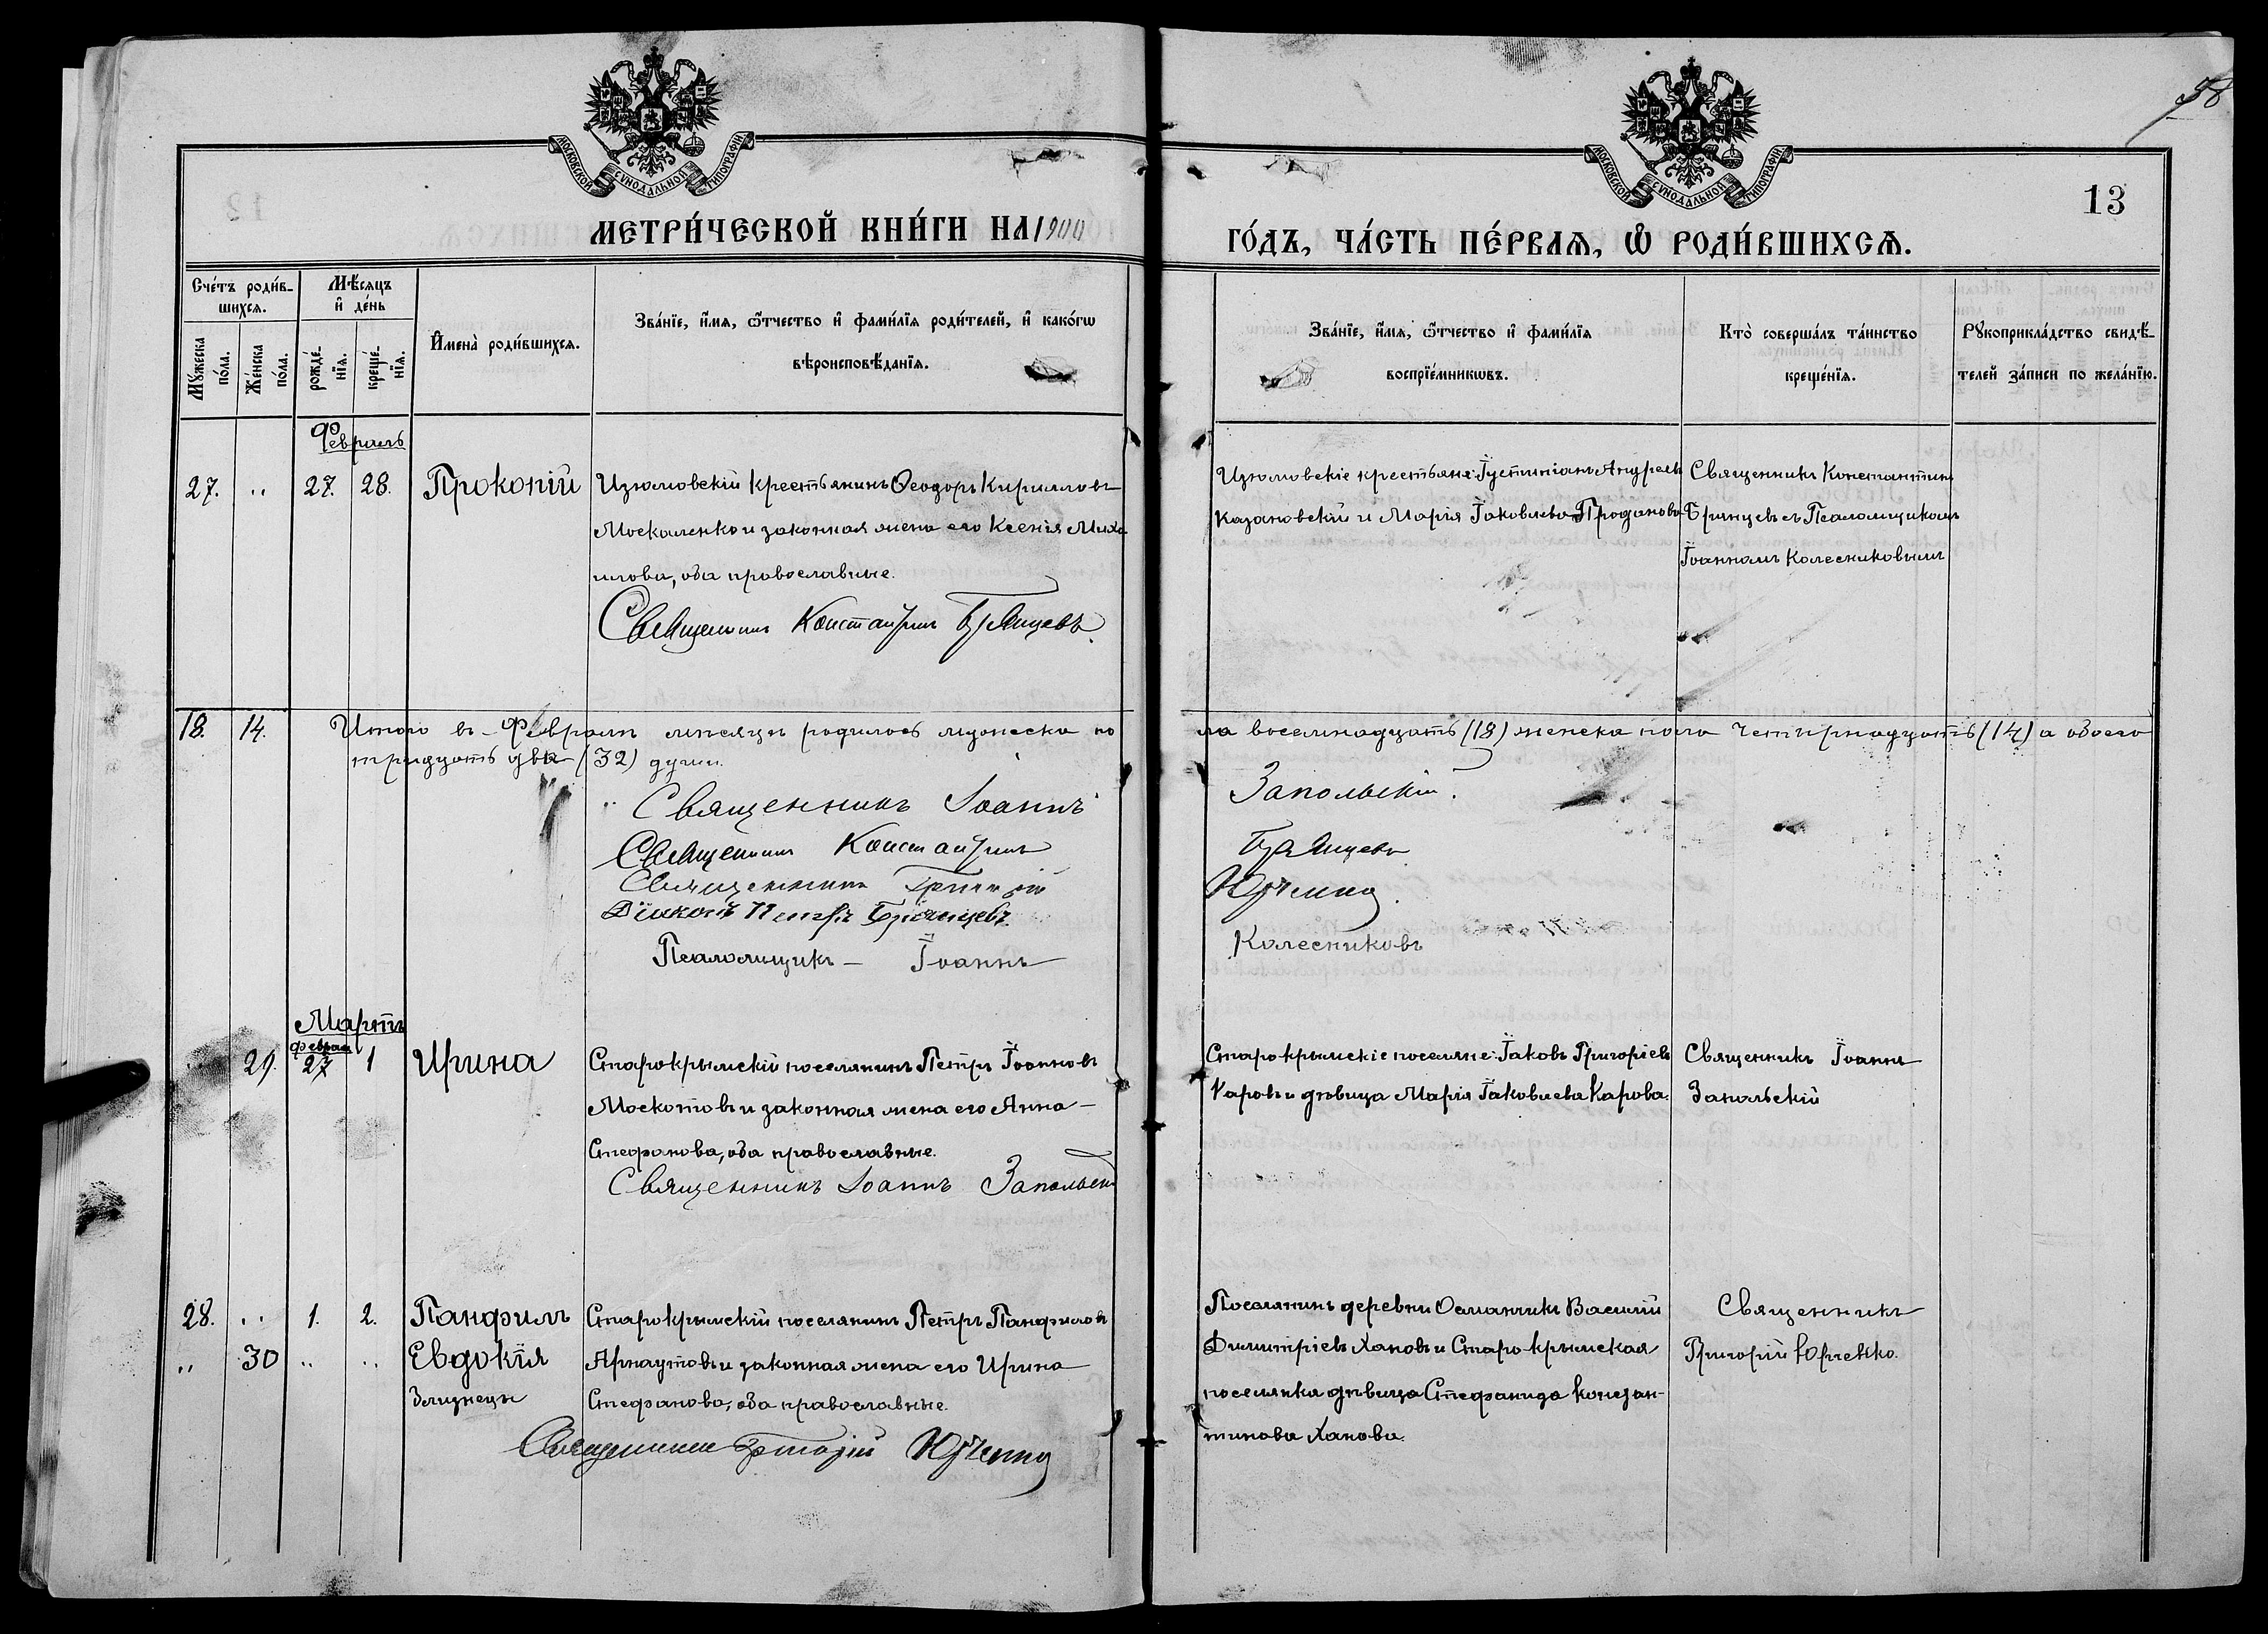 58
МОСКОВСКОЙ СѴНОДАЛЬНОЙ ТИПОГРАФІИ
МОСКОВСКОЙ СѴНОДАЛЬНОЙ ТИПОГРАФІИ
13
МЕТРИ́ЧЕСКОЙ КНИ́ГИ НА 1900
ГО́ДЪ, ЧА́СТЬ ПЕ́РВАѦ, Ѡ҆ РОДИ́ВШИХСѦ.
Сче́тъ роди́в-
шихсѧ.
Мѣ́сѧцъ
и҆ де́нь
Мꙋ́жеска
по́ла.
Же́нска
по́ла.
рожде́-
нїѧ.
креще́-
нїѧ.
И҆мена̀ роди́вшихсѧ.
Зва́нїе, и҆́мѧ, ѻ҆́тчество и҆ фами́лїѧ роди́телей, и҆ како́гѡ
вѣроисповѣ́данїѧ.
Зва́нїе, и҆́мѧ, ѻ҆́тчество и҆ фами́лїѧ
воспрїе́мникѡвъ.
Кто̀ соверша́лъ та́инство
креще́нїѧ.
Рꙋкоприкла́дство свидѣ́-
телей за́писи по жела́нїю.
Февраль
27. „ 27. 28. Прокопій Изюмовскій крестьянинъ Ѳеодоръ Кирилловъ
Москаленко и законная жена его Ксенія Миха
илова, оба православные.
Священникъ Константинъ Брянцевъ.
Изюмовскіе крестьяне: Іустиніанъ Андреевъ
Казановскій и Марія Іаковлева Проданова
Священникъ Константинъ
Брянцевъ съ Псаломщикомъ
Іоанномъ Колесниковымъ
18. 14. Итого въ Февралѣ мѣсяцѣ родилось мужеска по
ла восемнадцать (18) женска пола четырнадцать (14) а обоего
тридцать два (32) души.
Священникъ Іоаннъ Запольскій.
Священникъ Константинъ Брянцевъ
Священникъ Григорій Юрченко.
Діаконъ Петръ Брянцевъ.
Псаломщикъ – Іоаннъ Колесниковъ
Мартъ
феврал
„ 29. 27 1 Ирина Старокрымскій поселянинъ Петръ Іоанновъ
Москотовъ и законная жена его Анна –
Стефанова, оба православные.
Священникъ Іоаннъ Запольскій
Старокрымскіе поселяне: Іаковъ Григоріевъ
Каровъ и дѣвица Марія Іаковлева Карова.
Священникъ Іоаннъ
Запольскій
28. „ 1. 2. Панфилъ Старокрымскій поселянинъ Петръ Панфиловъ
„ 30 „ „ Евдокія Арнаутовъ и законная жена его Ирина
Близнецы Стефанова, оба православные.
Священникъ Григорій Юрченко
Поселянинъ деревни Османчикъ Василій
Димитріевъ Хановъ и Старокрымская
поселянка дѣвица Стефанида Констан-
тинова Ханова.
Священникъ
Григорій Юрченко.